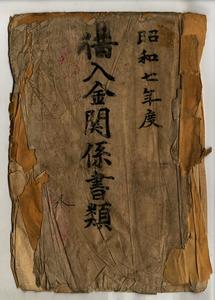 昭和七年度
借入金関係書類